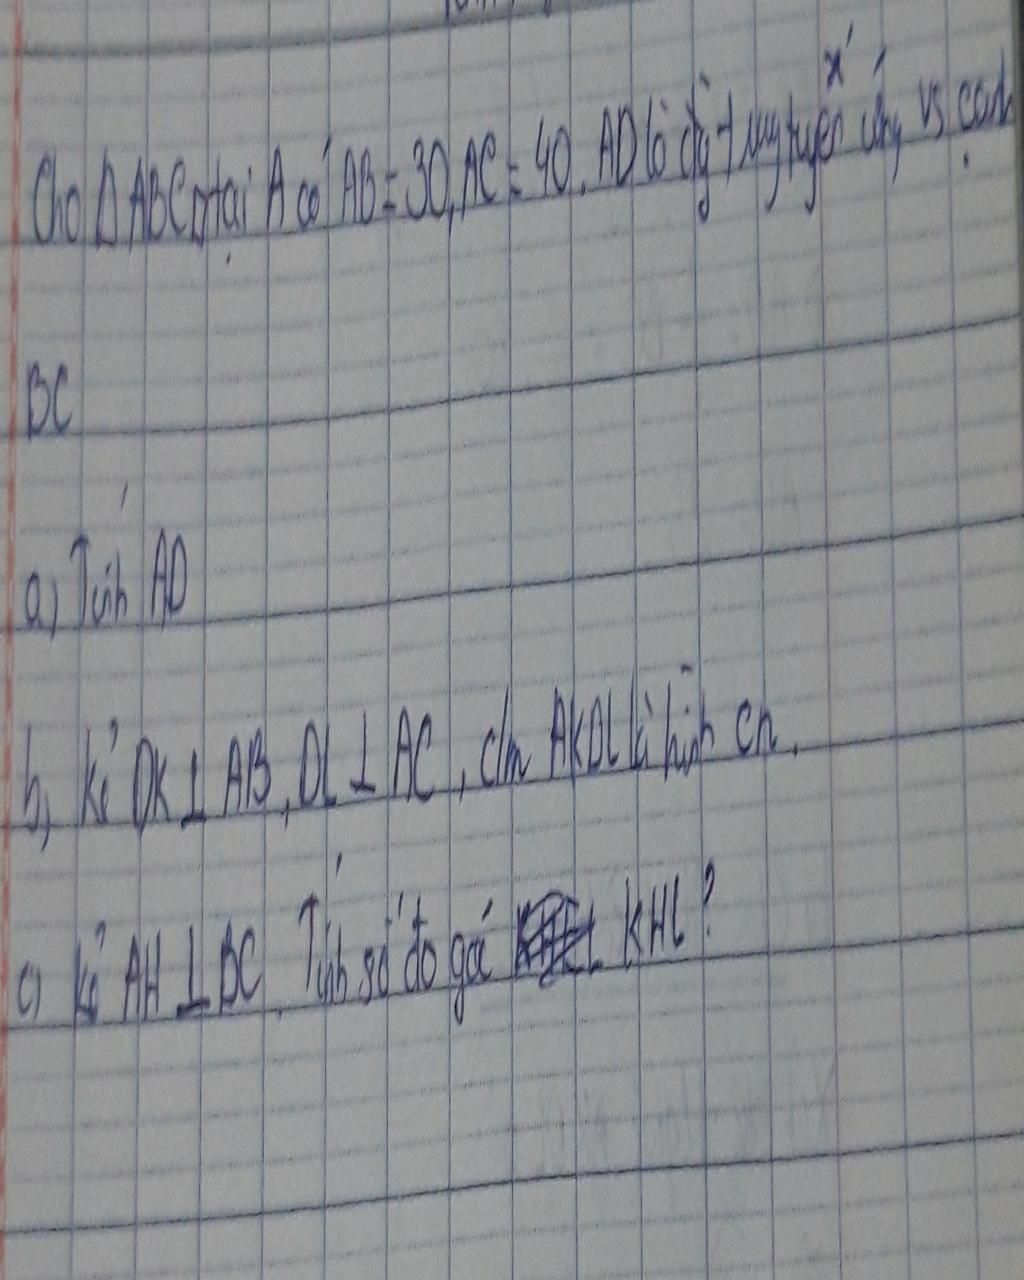 Cho Δ ABC tại A có AB = 30, AC = 40. AD là đg trung tuyến ứng vs cạnh
BC
a, Tính AD
b, kẻ DK ⊥ AB, DL ⊥ AC, c/m AKDL là hình cn.
c, kẻ AH ⊥ BC. Tính số đo góc KHL?